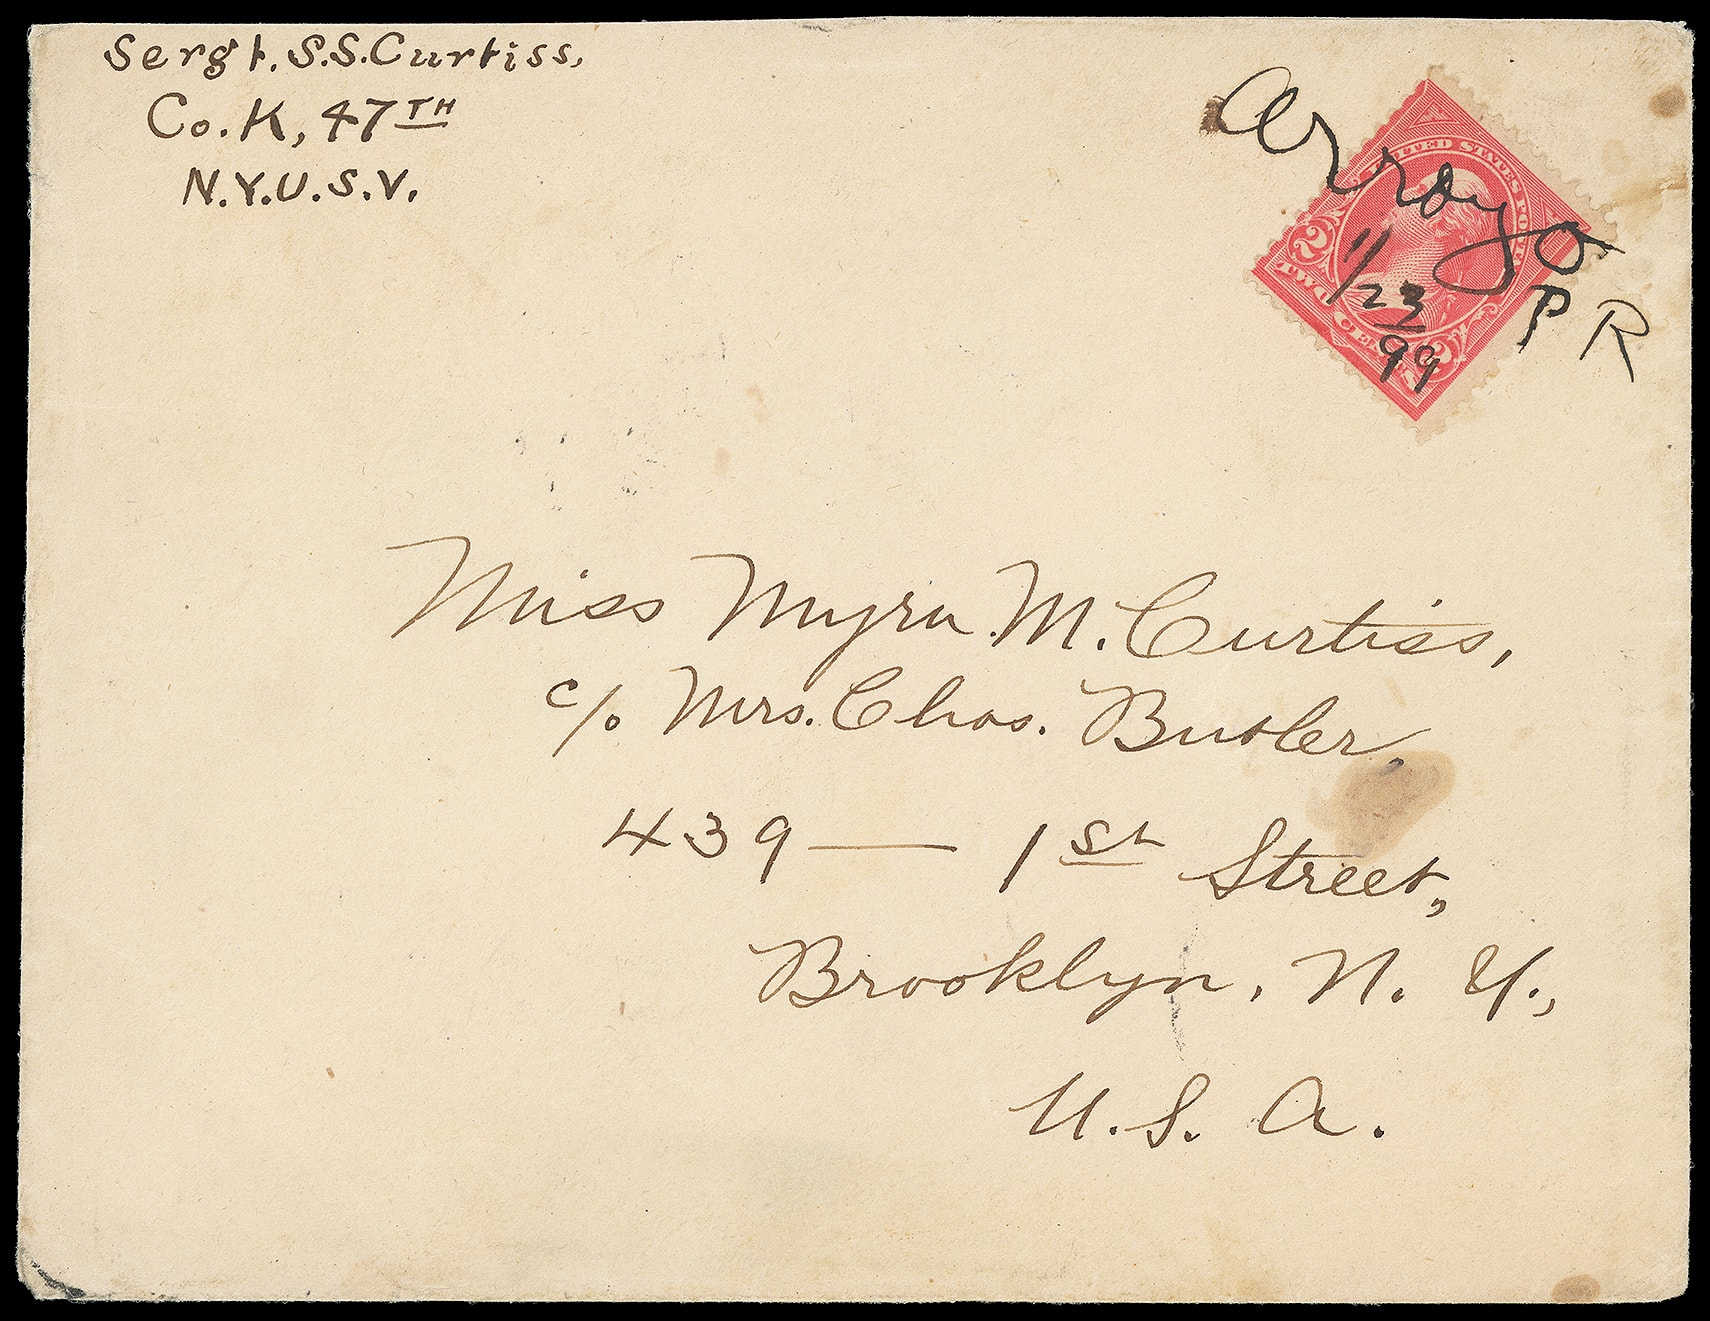 Sergt. S.S. Curtiss,
Co. K, 47TH
N.Y.U.S.V.
Arroyo
P R
11/23
99
UNITED STATES POSTA
2 2
TWO CENTS
Miss Myra M. Curtiss,
c/o Mrs. Chas. Butler,
439 — 1st Street,
Brooklyn, N. Y.,
U. S. A.